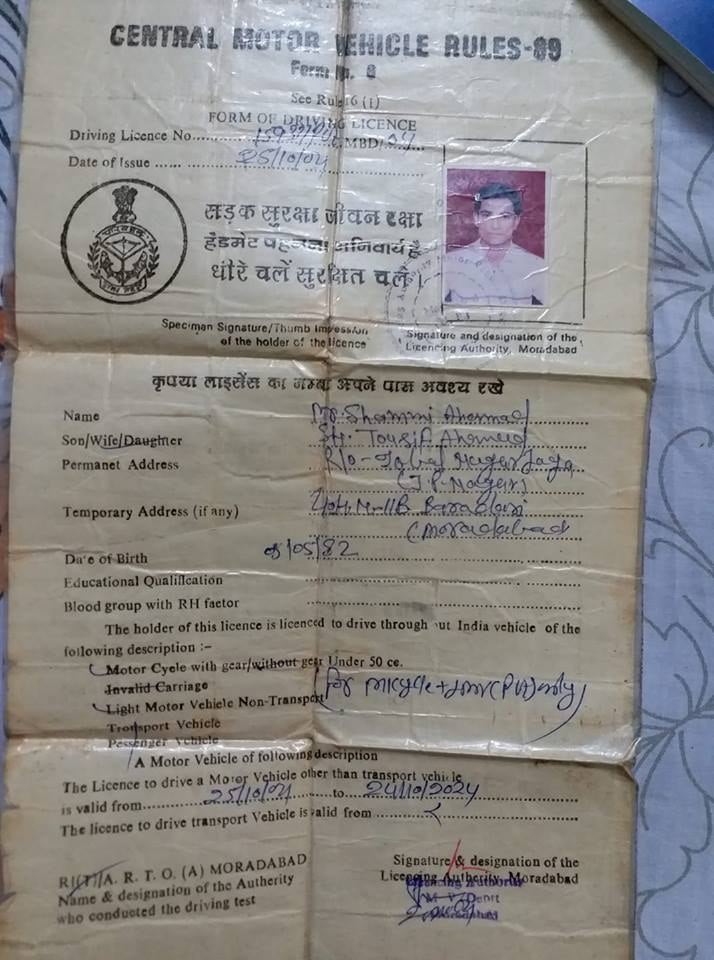 CENTRAL MOTOR VEHICLE RULES-89
Form No. 6
See Rule 16 (1)
FORM OF DRIVING LICENCE
Driving Licence No. MBD/04
Date of Issue ...... 25/10/04
सड़क सुरक्षा जीवन रक्षा
हैलमेट पहनना अनिवार्य है
धीरे चलें सुरक्षित चलें।
Specimen Signature/Thumb Impession
of the holder of the licence
Signature and designation of the
Licencing Authority, Moradabad
कृपया लाइसेंस का नम्बर अपने पास अवश्य रखे
Name Mr. Shammi Ahemad
Son/Wife/Daughter Sh. Tousif Ahemad
Permanet Address R/o-
(J.P. Nagar)
Temporary Address (if any) Baradari
(Moradabad
Date of Birth /05/82
Educational Qualification
Blood group with RH factor
The holder of this licence is licenced to drive through out India vehicle of the
following description :-
Motor Cycle with gear/without gear Under 50 cc.
Invalid Carriage
Light Motor Vehicle Non-Transport (For M/cycle + LMV (Pvt) only)
Transport Vehicle
Pessenger Vehicle
A Motor Vehicle of following description
The Licence to drive a Motor Vehicle other than transport vehicle
is valid from 25/10/04 to 24/10/2024
The licence to drive transport Vehicle is valid from
R(T)/A. R. T. O. (A) MORADABAD
Name & designation of the Autherity
who conducted the driving test
Signature & designation of the
Licencing Authority, Moradabad
Licencing Authority
M. V. Deptt
Moradabad